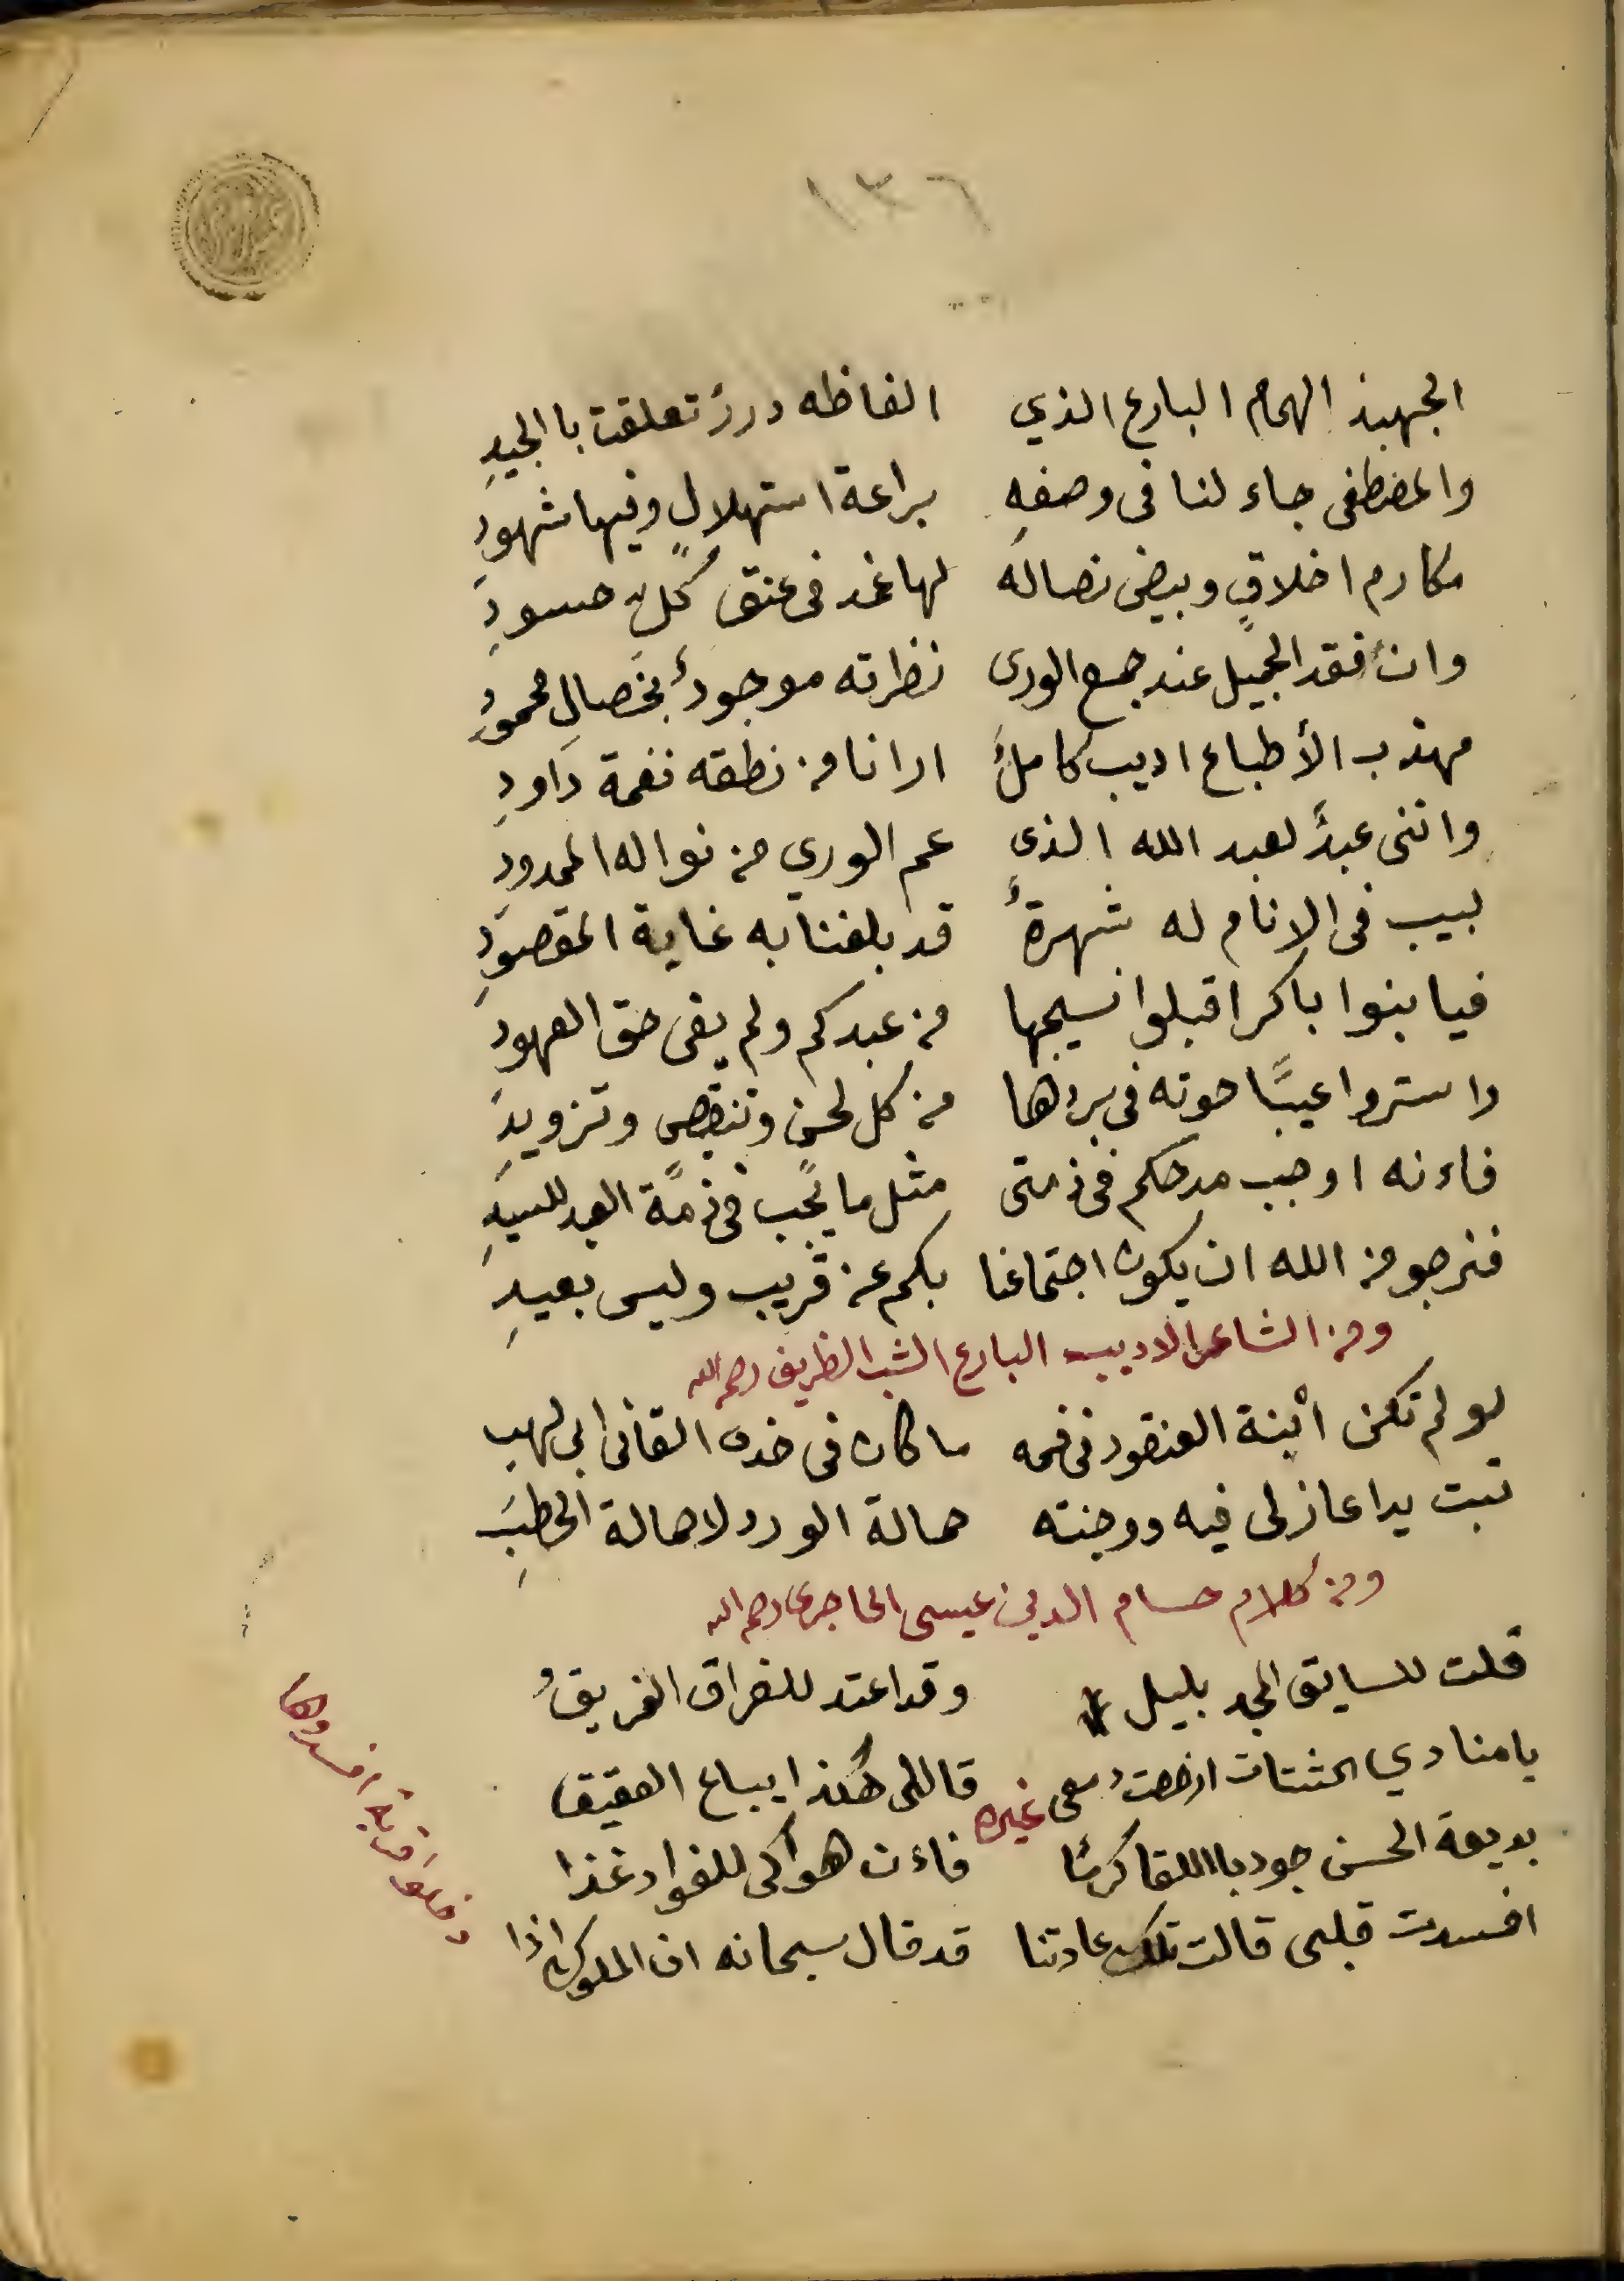 ١٣٦
الجهبذ الهمام البارع الذي الفاظه دررٌ تعلقت با الجيدِ
والمصطفى جاء لنا فى وصفهِ براعة استهلالٍ وفيها شهودِ
مكارم اخلاقٍ وبيض نصاله لها غمد فى عنق كلّ حسودِ
وان فقد الجميل عند جمع الورى نظرته موجودٌ بخصالِ محمودِ
مهذب الأطباع اديب كاملٌ ارانا من نطقه نغمة داودِ
وانني عبدٌ لعبد الله الذي عم الوري من نواله الممدودِ
لبيب فى الانام له شهرةٌ قد بلغنا به غاية المقصودِ
فيا بنوا باكر اقبلوا نسيجها من عبدكم ولم يفى حق العهودِ
واستروا عيبًا حوته فى بردها من كل لحنٍ وتنقصٍ وتزويدِ
فاءنه اوجب مدحكم فى ذمتى مثل ما يجب فى ذمّة العبد للسيدِ
فنرجو من الله ان يكون اجتماعنا بكم عن قريب وليس بعيدِ
ومن الشاعر الاديب البارع الشب الظريف رحمه الله
لو لم تكن ابنة العنقود فى فمه ما كان فى خده القانى ابى لهب
تبت يدا عاذلى فيه ووجنته حمالة الورد لا حمالة الحطبِ
ومن كلام حسام الدين عيسى الحاجرى رحمه الله
قلت للسايق المجد بليل وقد اعتد للفراق الفريقُ
يا منادي الشتات ارخصت دمعى قال لى هكذا يباع العقيق
غيره
بديعة الحسن جود با اللقا كرمًا فاءن هواكى للفواد غذا
افسدت قلبى قالت تلك عادتنا قد قال سبحانه ان الملوك اذا
دخلوا قرية افسدوها